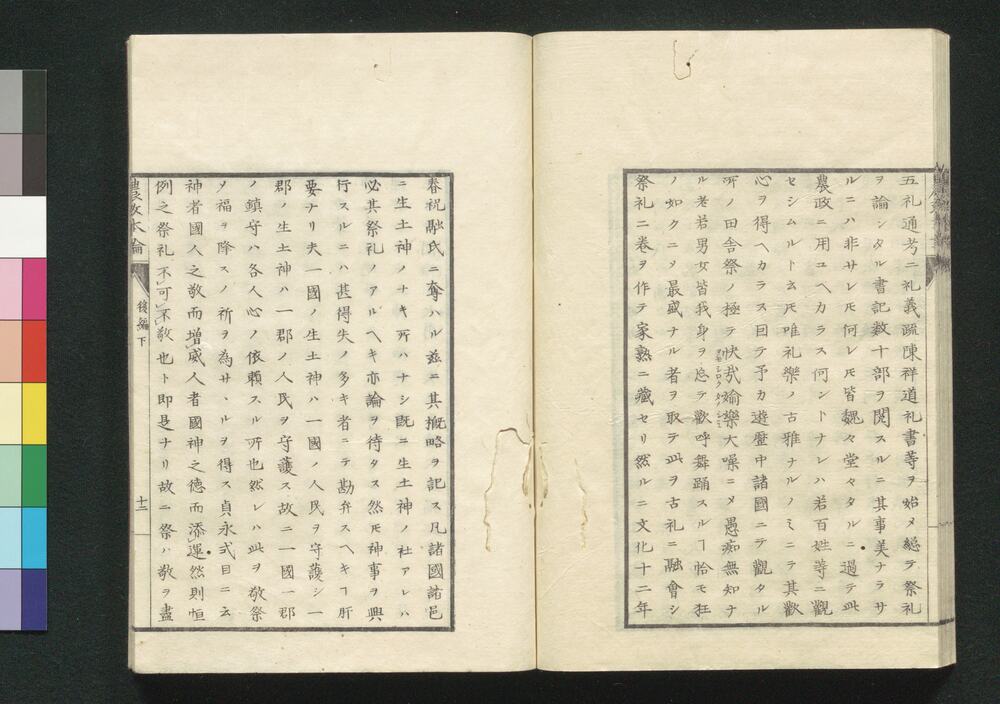 五礼通考ニ礼義疏陳祥道礼書䓁ヲ始メ總テ祭礼
ヲ論シタル書記数十部ヲ閲スルニ其事美ナラサ
ルニハ非サレ𪜈何レ𪜈皆魏々堂々タルニ過テ此
農政ニ用ユヘカラス何ントナレハ若百姓等ニ觀
セシムルト云𪜈唯礼樂ノ古雅ナルノミニテ其歡
心ヲ得ヘカラス因テ予カ遊歴中諸國ニテ觀タル
所ノ田舎祭ノ極テ快哉婾樂大噪ニメ愚痴無知ナ
ル老若男女皆我身ヲ忘テ歡呼舞踊スルヿ恰モ狂
ノ如クニメ最盛ナル者ヲ取テ此ヲ古礼ニ融會シ
祭礼二巻ヲ作テ家塾ニ藏セリ然ルニ文化十二年
春祝融氏ニ奪ハル兹ニ其概略ヲ記ス凡諸國諸邑
ニ生土神ノナキ所ハナシ既ニ生土神ノ社アレハ
必其祭礼ノアルヘキ亦論ヲ待タス然𪜈神事ヲ興
行スルニハ甚得失ノ多キ者ニテ勘弁スヘキヿ肝
要ナリ夫一國ノ生土神ハ一國ノ人民ヲ守護シ一
郡ノ生土神ハ一郡ノ人民ヲ守護ス故ニ一國一郡
ノ鎮守ハ各人心ノ依頼スル所也然レハ此ヲ敬祭
メ福ヲ降スノ祈ヲ為サヽルヲ得ス貞永式目ニ云
神者國人之敬而増威人者國神之德而添運然則恒
例之祭礼不可不敬也ト即是ナリ故ニ祭ハ敬ヲ盡
農政本論
後編下
十二